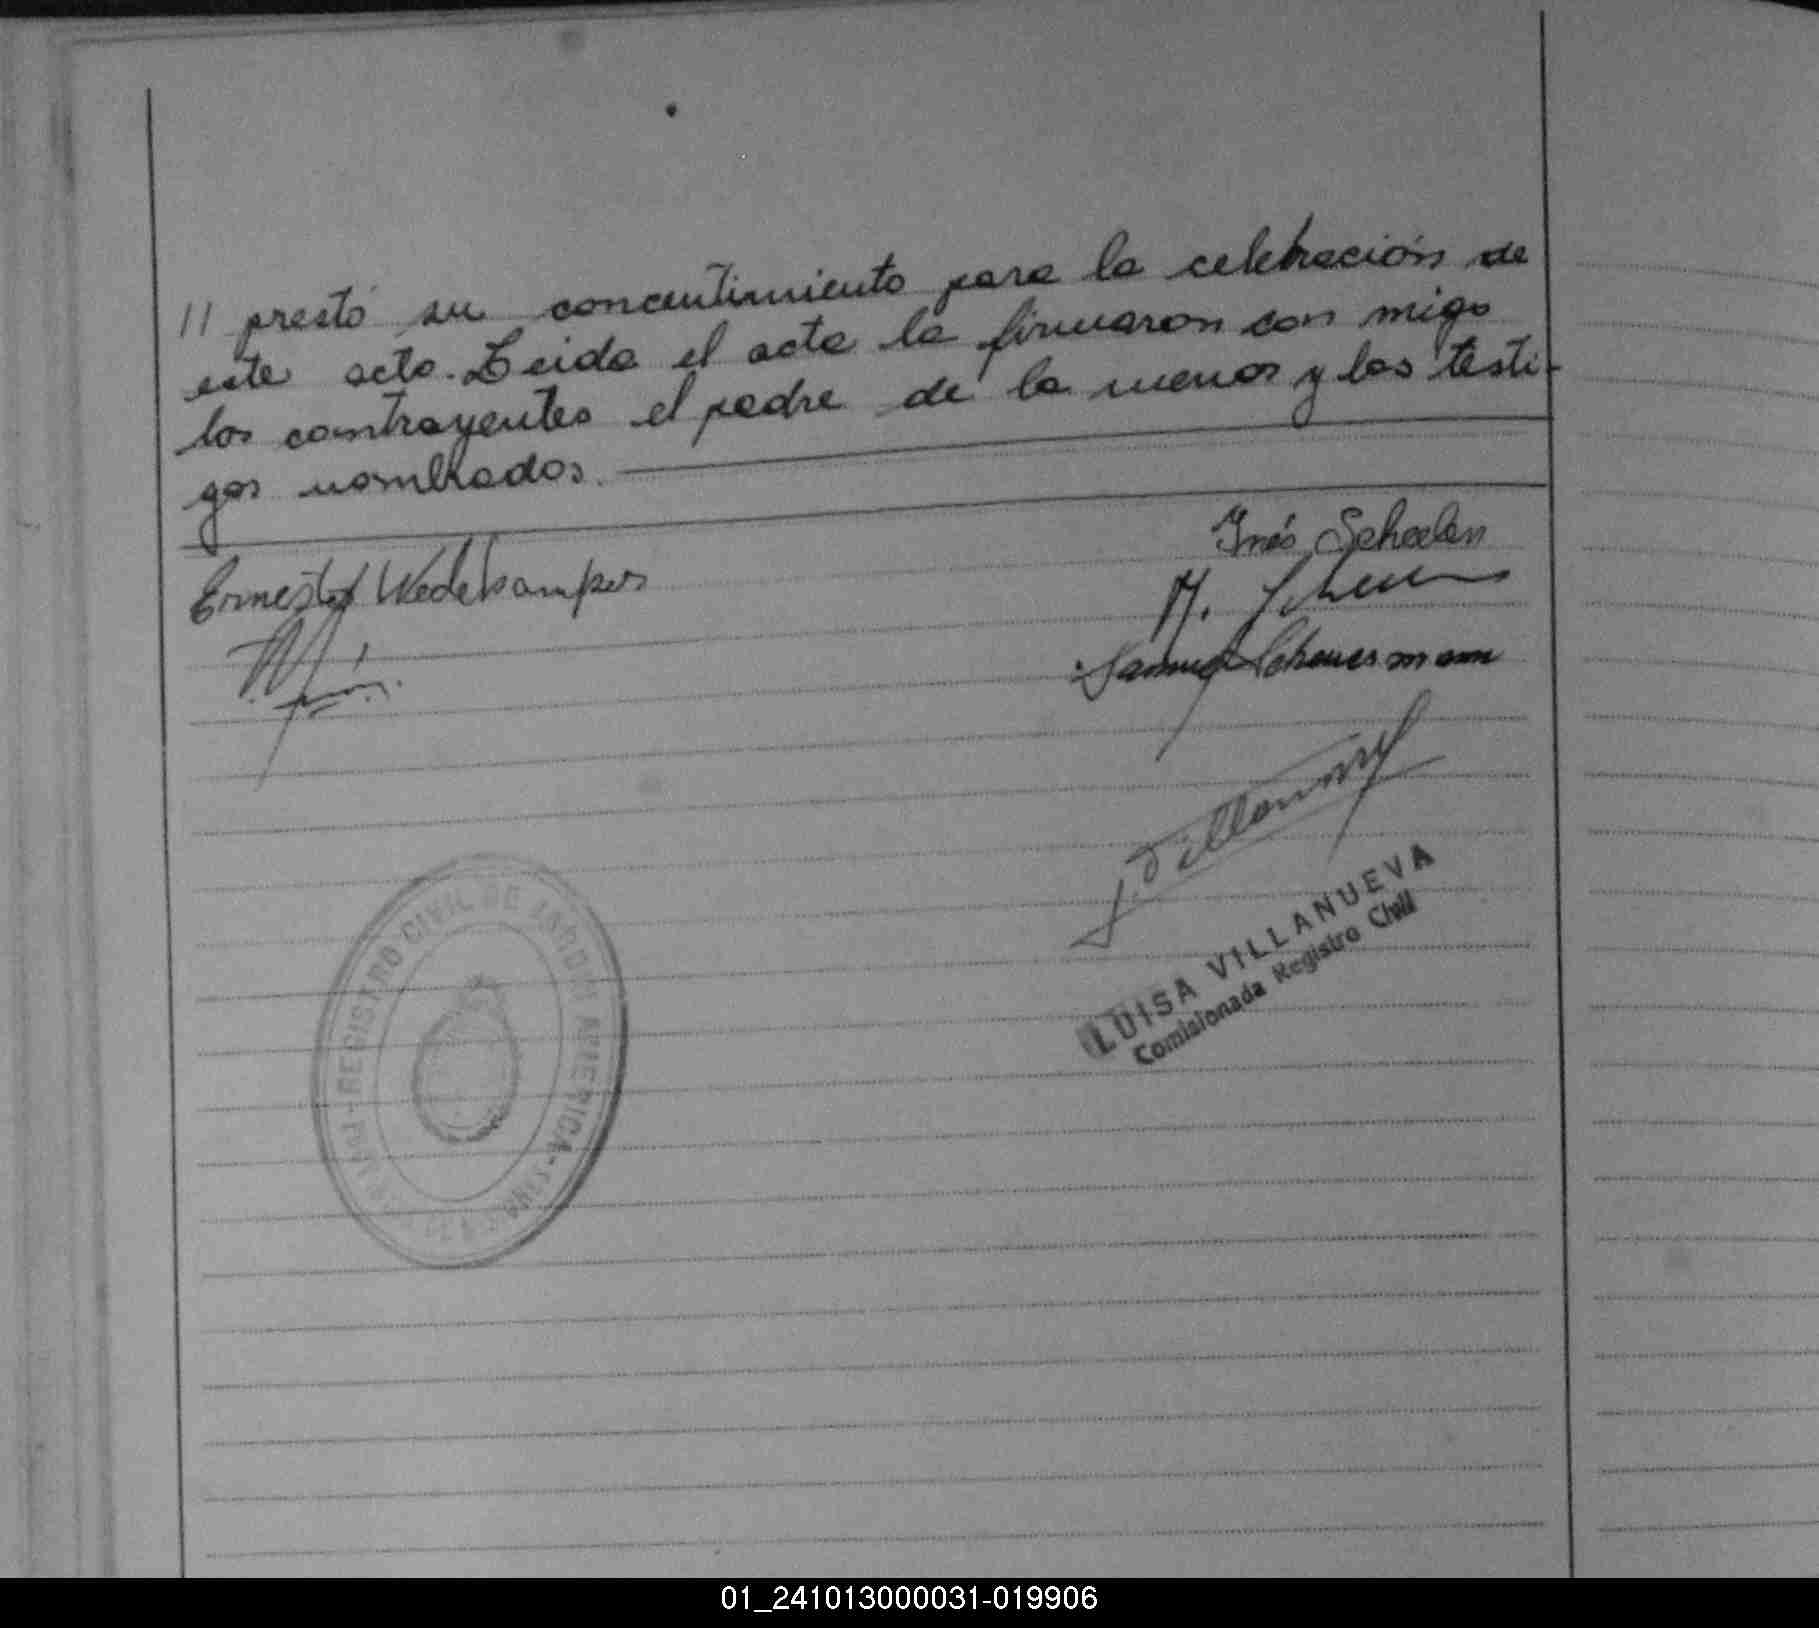 // prestó su concentimiento para la celebración de
este acto. Leida el acta la firmaron con migo
los contrayentes el padre de la menor y los testi-
gos nombrados.
Inés Scheelen
Ernesto Wedekamper
Samuel Scheuermann
L. Villanueva
LUISA VILLANUEVA
Comisionada Registro Civil
REGISTRO CIVIL DE JARDIN AMERICA -
01_241013000031-019906